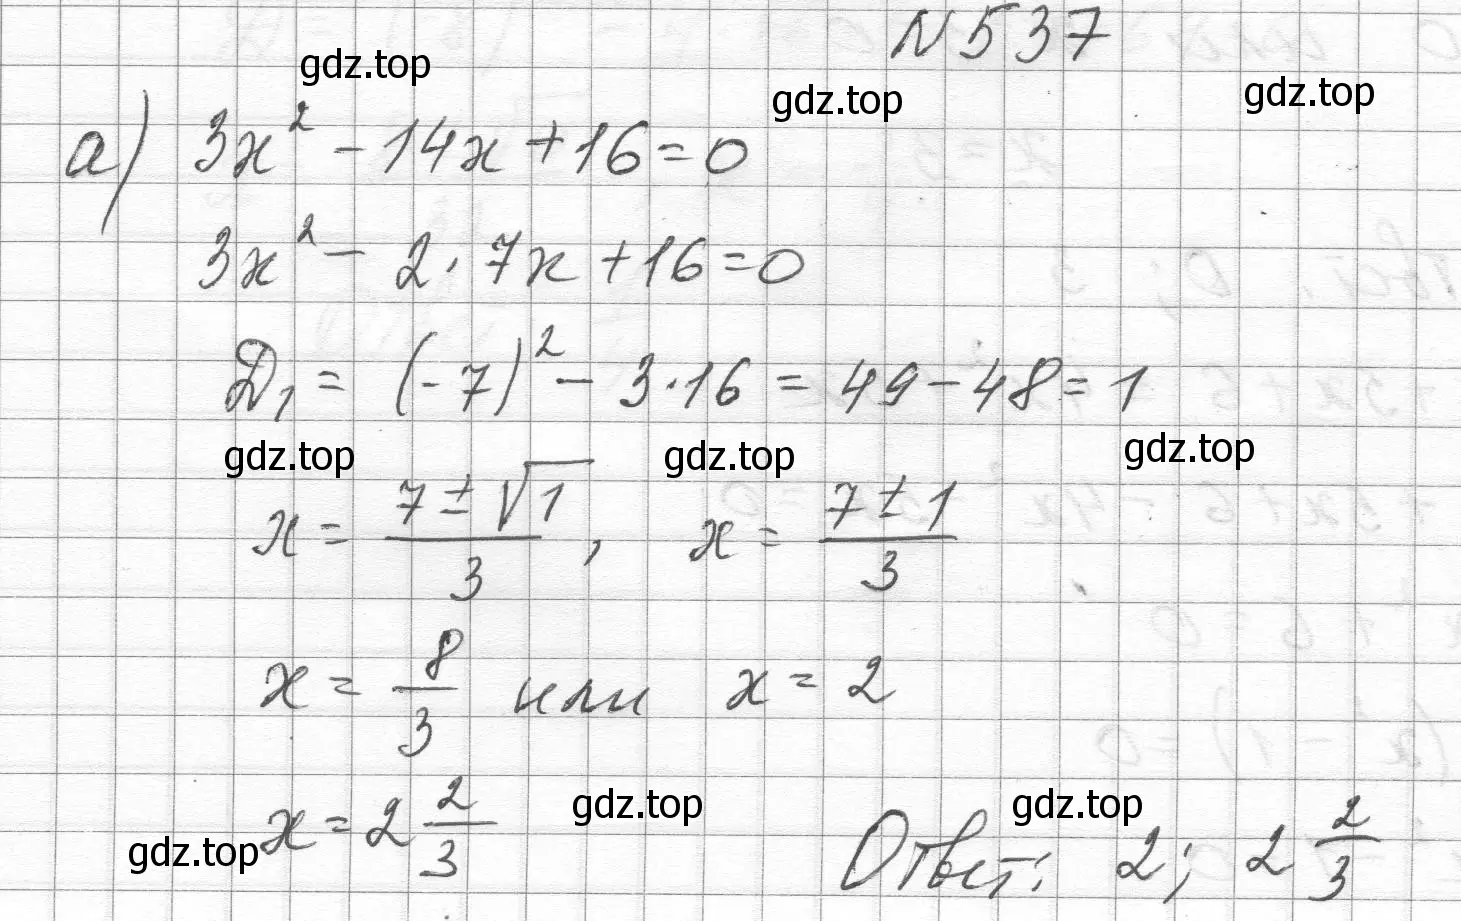 N 537
gdz.top gdz.top gdz.top
а) 3x² - 14x + 16 = 0
3x² - 2 · 7x + 16 = 0
Д₁ = (-7)² - 3 · 16 = 49 - 48 = 1
gdz.top gdz.top gdz.top
x = (7 ± √1)/3, x = (7 ± 1)/3
x = 8/3 или x = 2
x = 2 2/3
gdz.top gdz.top gdz.top
Ответ: 2; 2 2/3